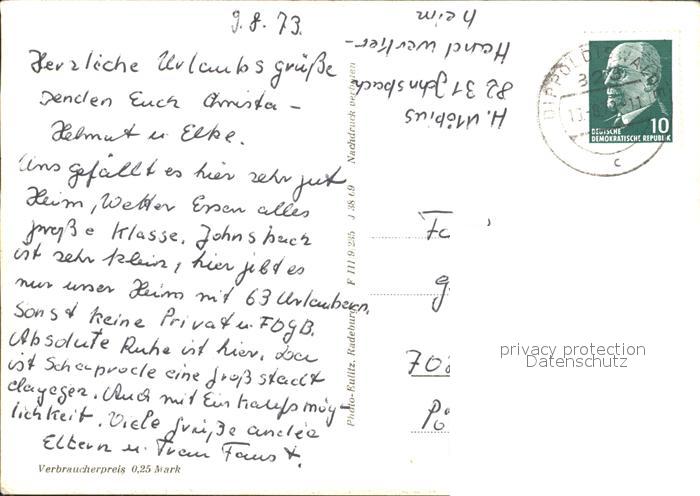 9.8.73.
Herzliche Urlaubsgrüße
senden Euch Christa –
Helmut u. Elke.
Uns gefällt es hier sehr gut
Heim, Wetter Essen alles
große Klasse. Johnsbach
ist sehr klein, hier gibt es
nur unser Heim mit 63 Urlaubern,
sonst keine Privat u. FDGB.
Absolute Ruhe ist hier, da
ist Schaprode eine Großstadt
dagegen. Auch mit Einkaufsmög-
lichkeit. Viele Grüße an die
Eltern u. Frau Faust.
Verbraucherpreis 0,25 Mark
Photo-Kulitz, Radeburg F III 9 235 J 38 69 Nachdruck verboten
8231 Johnsbach
Handwerker-
heim
DEUTSCHE
DEMOKRATISCHE REPUBLIK
10
DIPPOLDISWALDE
c
privacy protection
Datenschutz